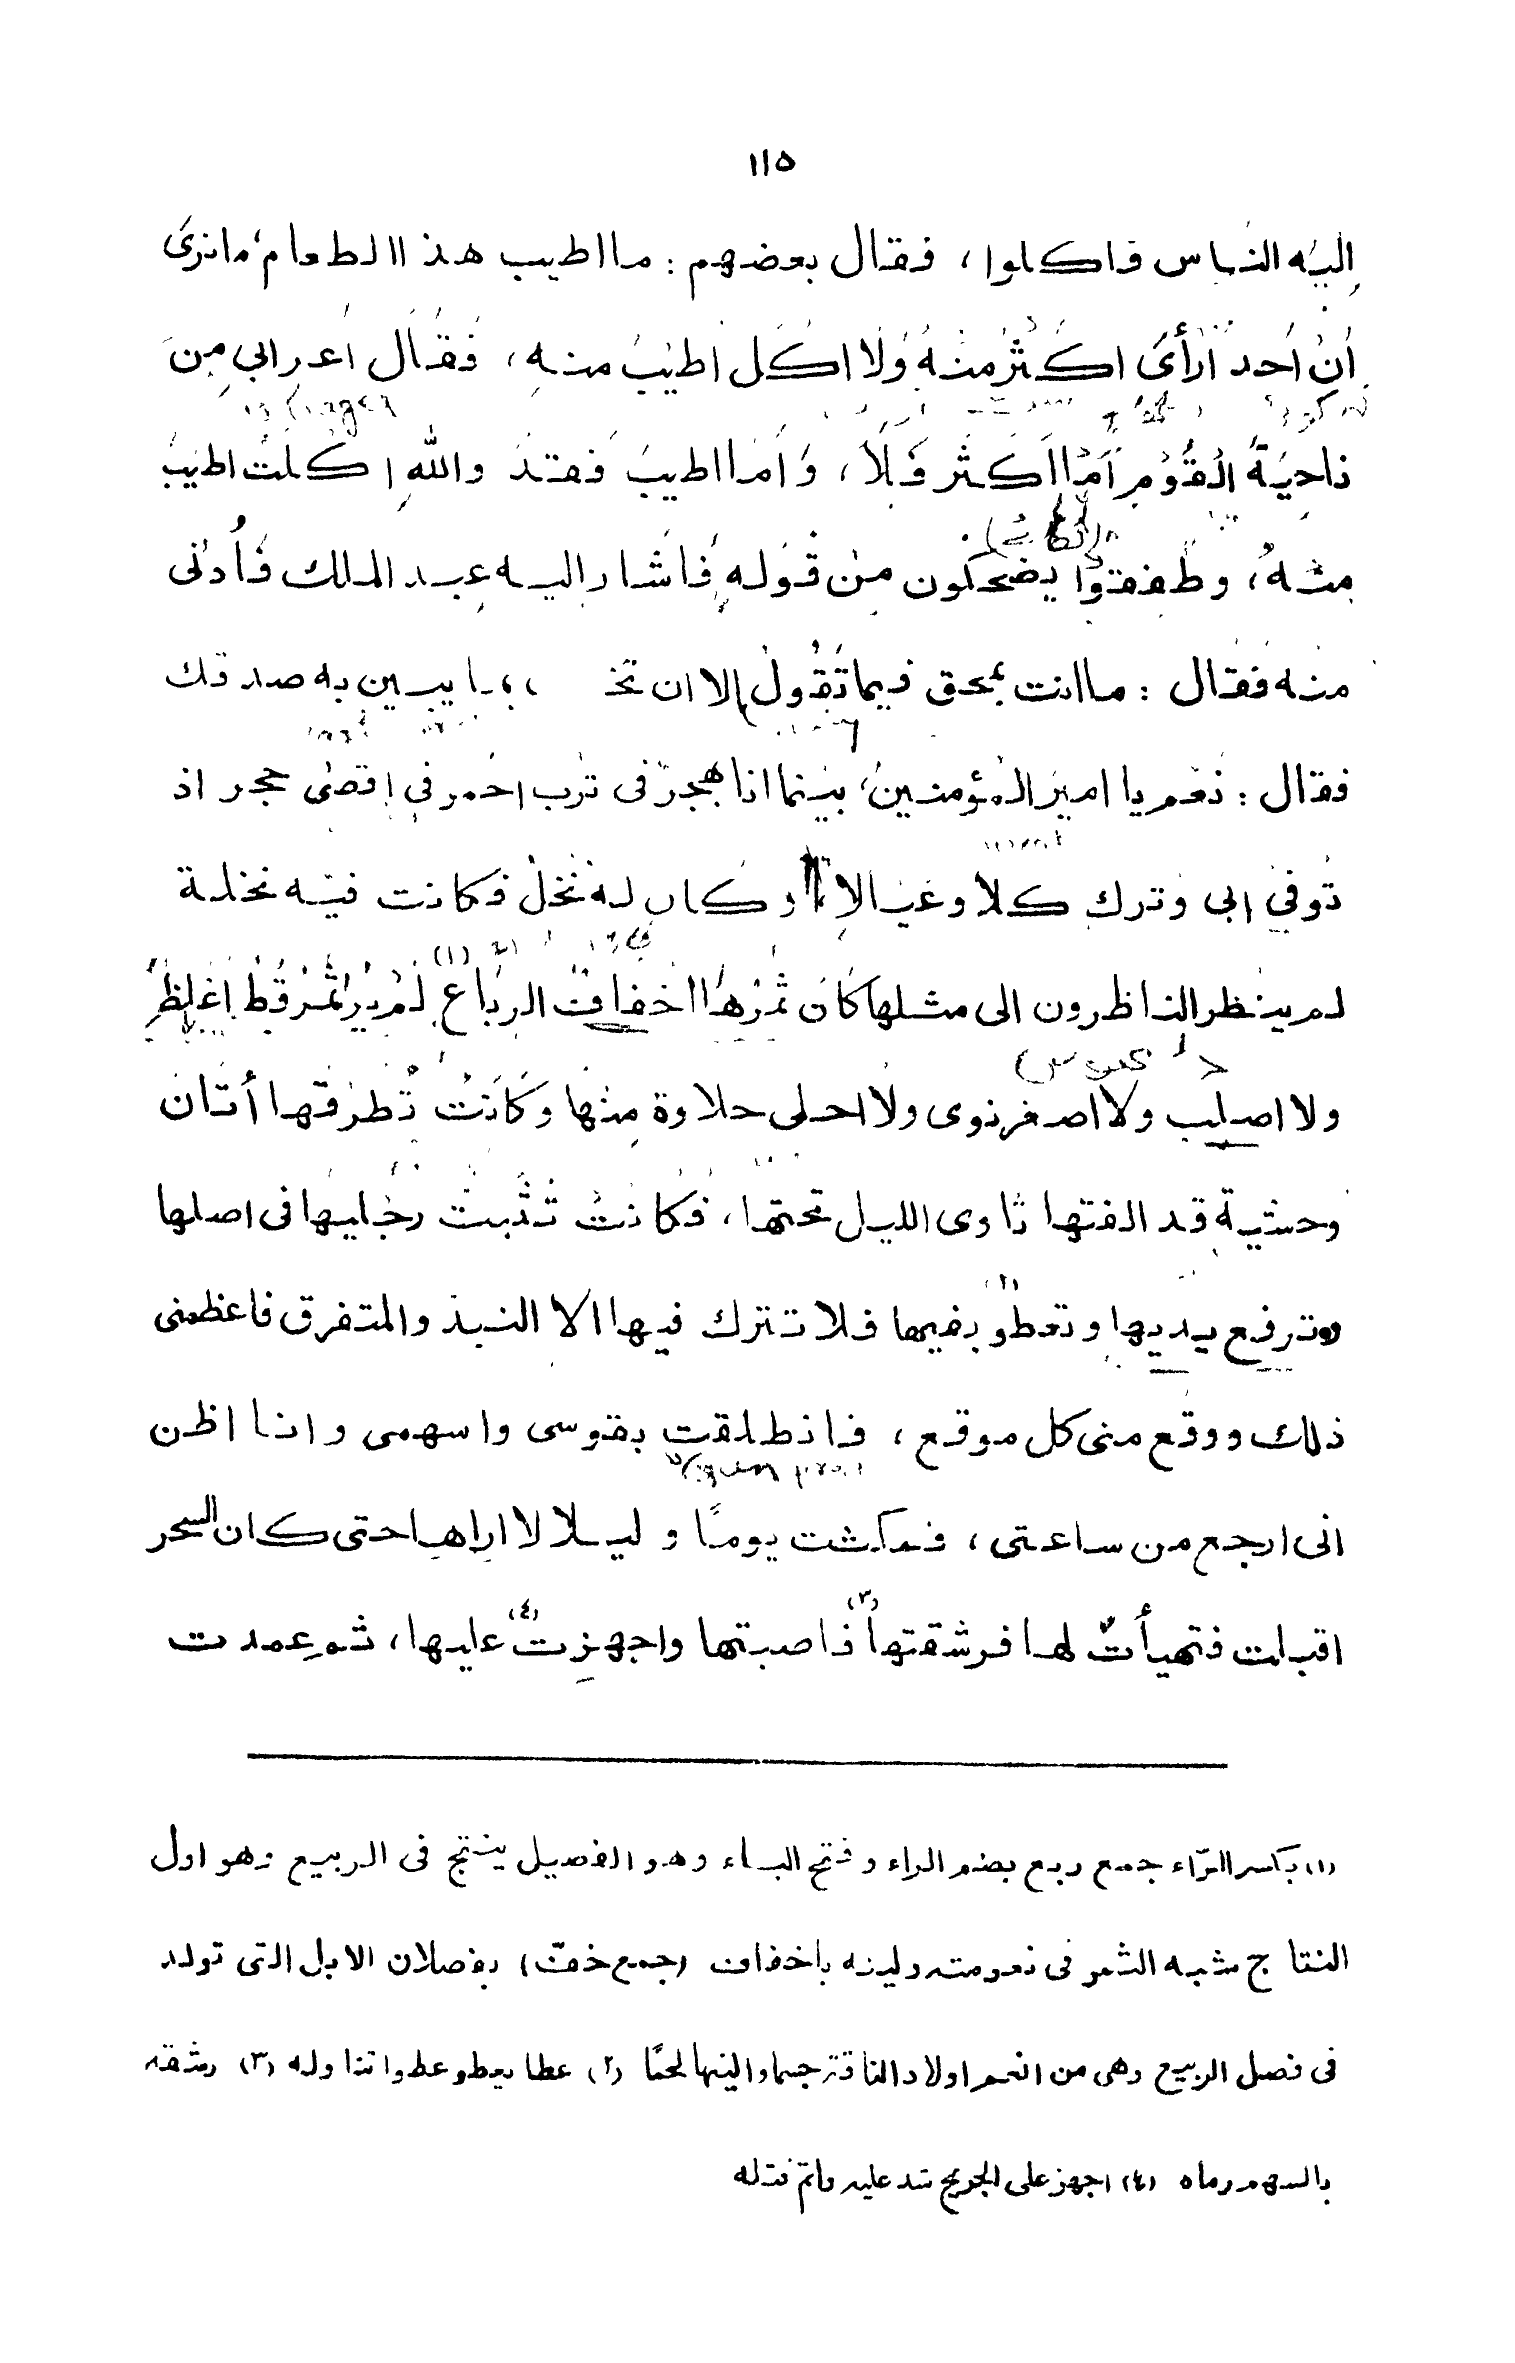 ١١٥
إليه الناس فاكلوا، فقال بعضهم: ما اطيب هذا الطعام، ما نرى
أن أحد أرأى اكثر منه ولا اكل اطيب منه، فقال اعرابي من
ناحية القوم أما اكثر فلا، وأما اطيب فقد والله اكلت اطيب
منه، وطفقوا يضحكون من قوله فأشار اليه عبد الملك فأدنى
منه فقال: ما انت بمحق فيما تقول إلا ان تخ بما يبين به صدقك
فقال: نعم يا امير المؤمنين، بينما انا بهجر فى ترب احمر في اقصى حجر اذ
توفي ابى وترك كلا وعيالا وكان له نخل فكانت فيه نخلة
لم ينظر الناظرون الى مثلها كأن ثمرها اخفاف الرباع (١) لم ير تمر قط اغلظ
ولا اصلب ولا اصغر نوى ولا احلى حلاوة منها وكانت تطرقها أتان
وحشية قد الفتها تاوى الليل تحتها، فكانت تثبت رجليها فى اصلها
وترفع يديها وتعطو (٢) بفيها فلا تترك فيها الا النبذ والمتفرق فاعظمنى
ذلك ووقع منى كل موقع، فانطلقت بقوسى واسهمى وانا اظن
انى ارجع من ساعتى، فمكثت يوما وليلا لا اراها حتى كان السحر
اقبلت فتهيأت لها فرشقتها (٣) فاصبتها واجهزت (٤) عليها، ثم عمدت
(١) بكسر الرّاء جمع ربع بضم الراء وفتح الباء وهو الفصيل ينتج فى الربيع وهو اول
النتاج شبه الثمر فى نعومته ولينه باخفاف (جمع خفّ) بفصلان الابل التى تولد
فى فصل الربيع وهى من انعم اولاد الناقة جسما والينها لحمًا (٢) عطا يعطو عطوا تناوله (٣) رشقه
بالسهم رماه (٤) اجهز على الجريح شد عليه واتمّ قتله